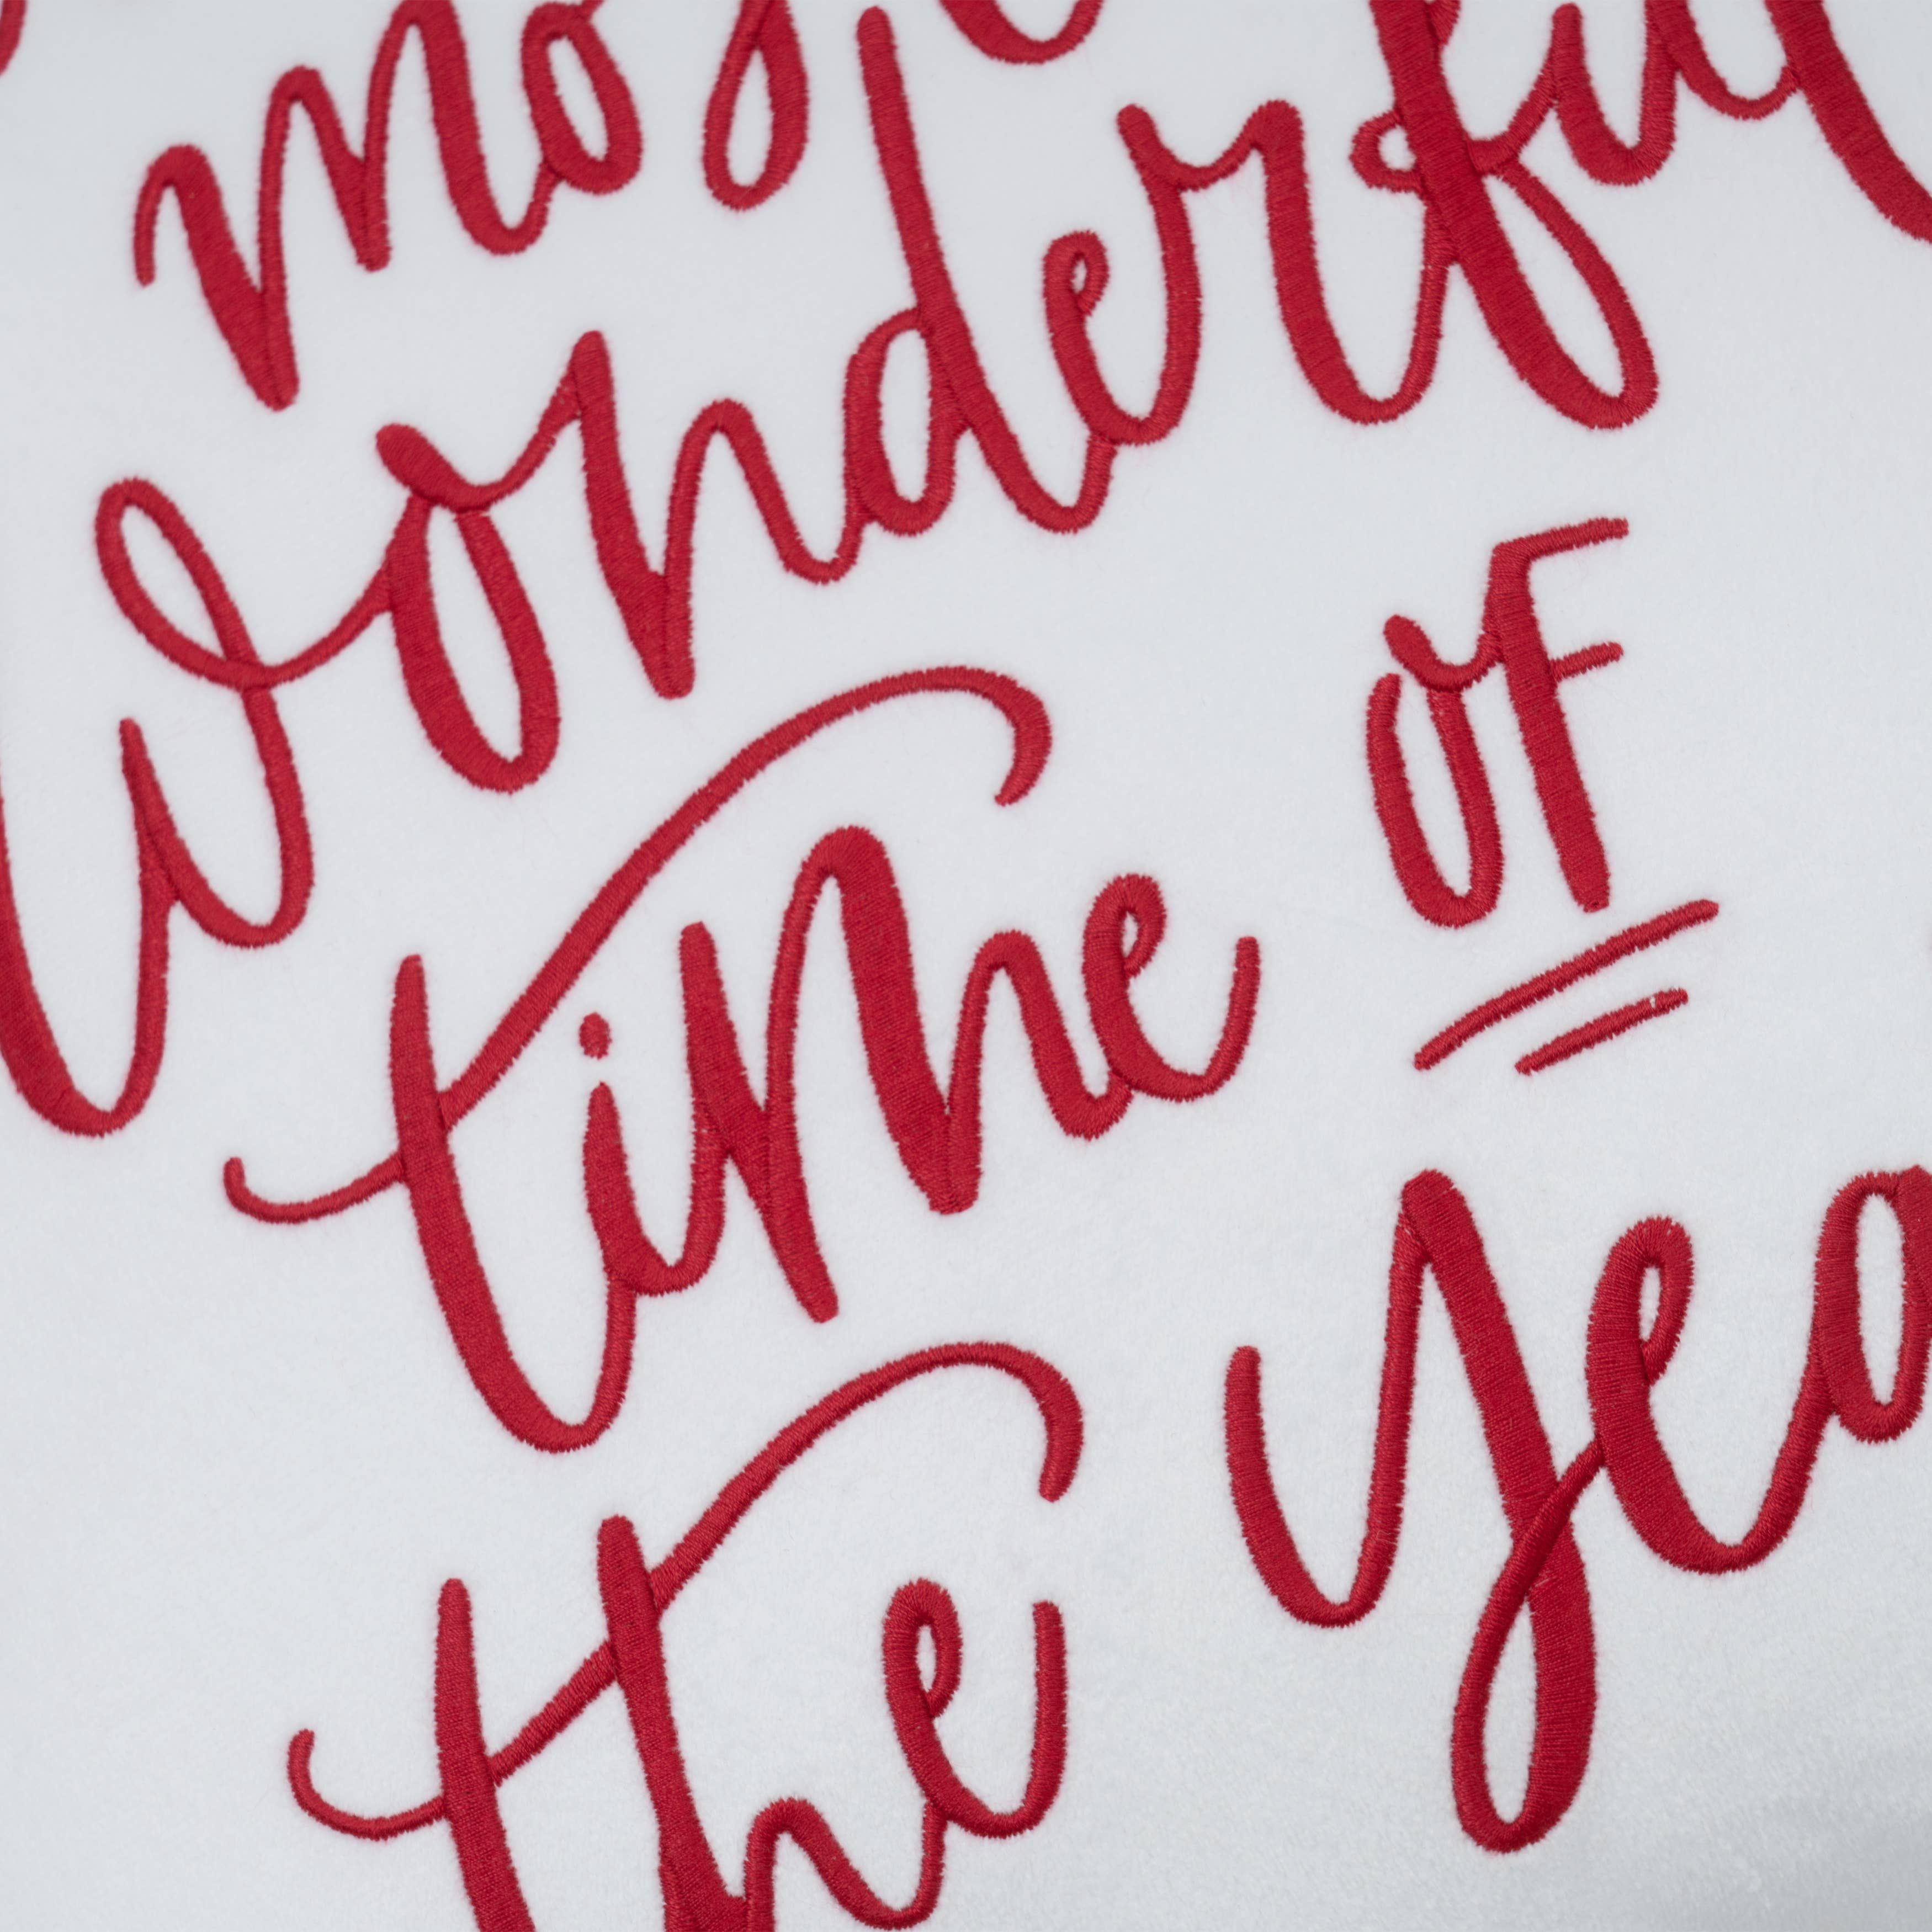 most
wonderful
time of
the yea